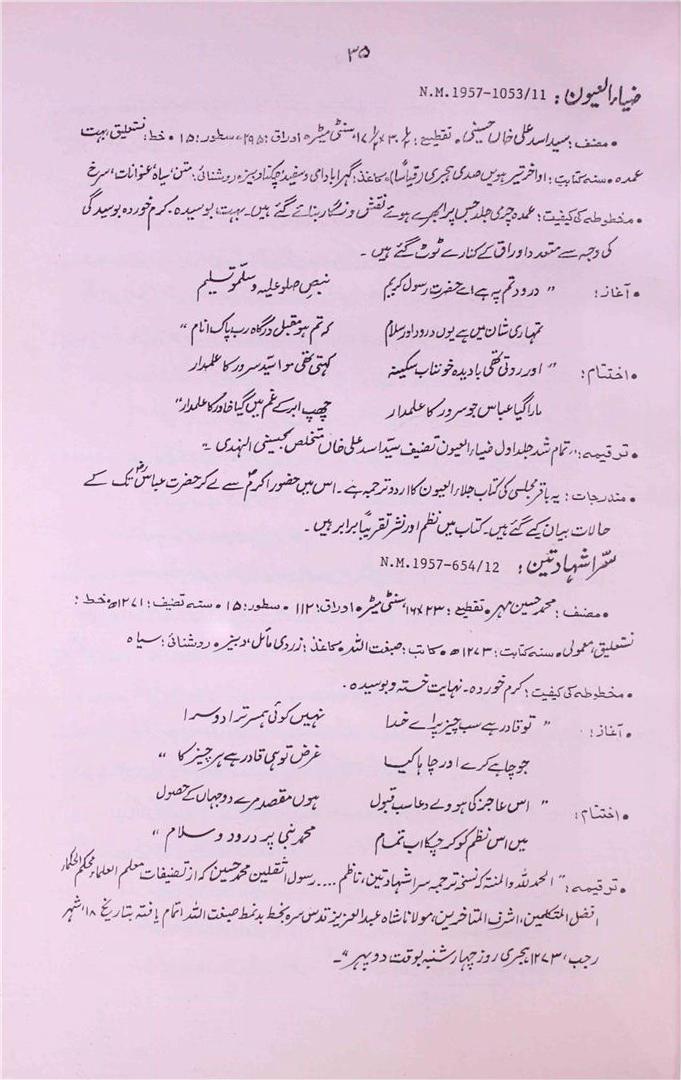 ۳۵
ضیاء العیون: N.M.1957-1053/11
• مصنف: سید اسد علی خاں حسینی • تقطیع: ۳۰ x ۱۷ سنٹی میٹر • اوراق: ۲۹۵ • سطور: ۱۵ • خط: نستعلیق، بہت
عمدہ • سنہ کتابت: اواخر تیرہویں صدی ہجری (قیاساً) • کاغذ: گہرا بادامی و سفید چکنا دبیز • روشنائی: متن، سیاہ عنوانات، سرخ
• مخطوطہ کی کیفیت: عمدہ چرمی جلد جس پر ابھرے ہوئے نقش و نگار بنائے گئے ہیں۔ بہت بوسیدہ۔ کرم خوردہ بوسیدگی
کی وجہ سے متعدد اوراق کے کنارے ٹوٹ گئے ہیں۔
• آغاز: " درود تم پہ ہے اے حضرت رسول کریم بنص صلو علیہ و سلمو تسلیم
تمہاری شان میں ہے یوں درود اور سلام کہ تم ہو مقبل درگاہ رب پاک انام "
• اختتام: " اور روتی تھی بادیدہ خونناب سکینہ کہتی تھی موا سید سرور کا علمدار
مارا گیا عباس جو سرور کا علمدار چھپ ابر کے غم میں گیا خاور کا علمدار"
• ترقیمہ: "تمام شد جلد اول ضیاء العیون تصنیف سید اسد علی خاں متخلص بحسینی الہندی۔"
• مندرجات: یہ باقر مجلسی کی کتاب جلاء العیون کا اردو ترجمہ ہے۔ اس میں حضور اکرمؐ سے لے کر حضرت عباسؓ تک کے
حالات بیان کیے گئے ہیں۔ کتاب میں نظم اور نثر تقریباً برابر ہیں۔
سرّا شہادتین: N.M.1957-654/12
• مصنف: محمد حسین مہر • تقطیع: ۲۳ x ۱۶ سنٹی میٹر • اوراق: ۱۱۲ • سطور: ۱۵ • سنہ تصنیف: ۱۲۷۱ھ • خط:
نستعلیق، معمولی • سنہ کتابت: ۱۲۷۳ھ • کاتب: صبغت اللہ • کاغذ: زردی مائل، دبیز • روشنائی: سیاہ
• مخطوطہ کی کیفیت: کرم خوردہ۔ نہایت خستہ و بوسیدہ۔
• آغاز: " تو قادر ہے سب چیز پر اے خدا نہیں کوئی ہمسر ترا دوسرا
جو چاہے کرے اور چاہا کیا غرض تو ہی قادر ہے ہر چیز کا "
• اختتام: " اس عاجز کی ہووے دعا سب قبول ہوں مقصد مرے دو جہاں کے حصول
میں اس نظم کو کر چکا اب تمام محمد نبی پر درود و سلام "
• ترقیمہ: " الحمد للہ والمنۃ کہ نسخۂ ترجمہ سرا شہادتین، ناظم .... رسول الثقلین محمد حسین، کہ از تصنیفات معلم العلماء محکم الحکماء
افضل المتکلمین، اشرف المتاخرین، مولانا شاہ عبدالعزیز قدس سرہ بخط بدنمط صبغت اللہ اتمام یافتہ بتاریخ ۱۸، شہر
رجب، ۱۲۷۳ ہجری روز چہار شنبہ بوقت دوپہر"۔